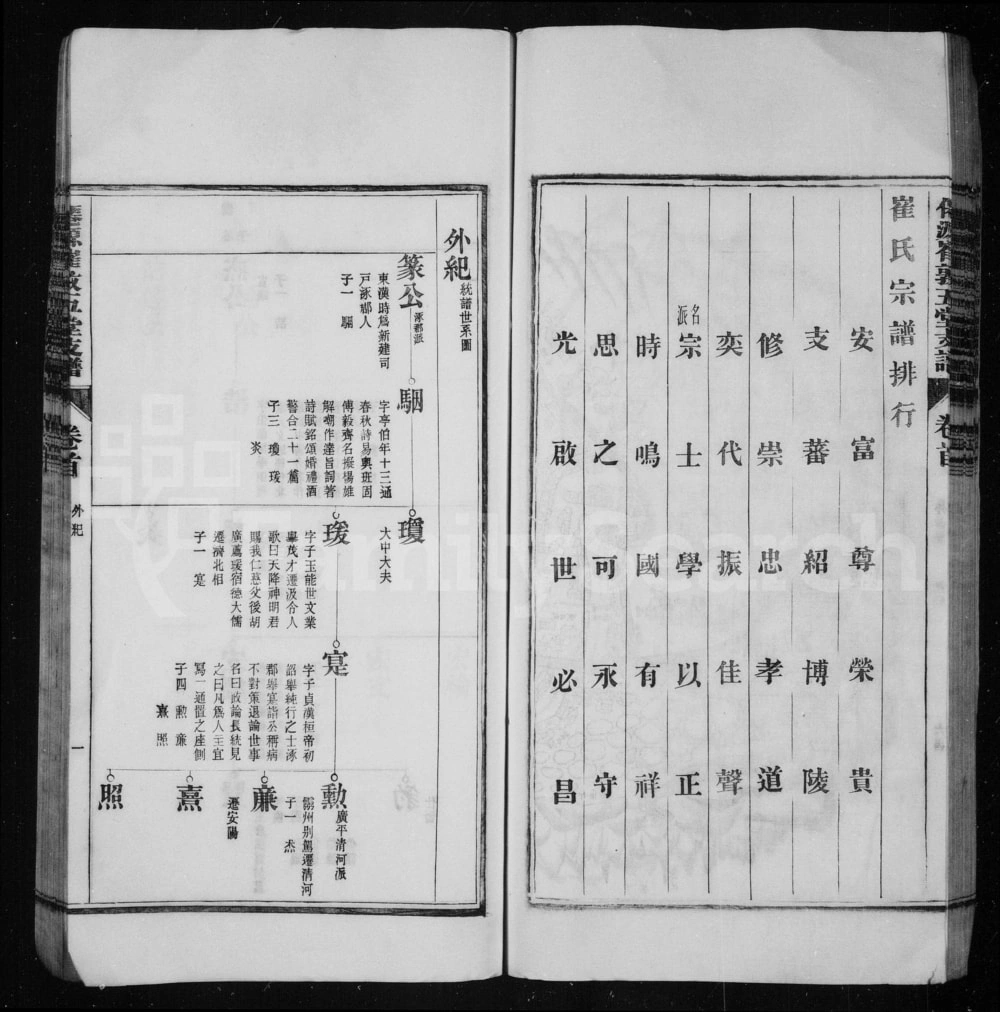 崔氏宗譜排行
安富尊榮貴
支蕃紹博陵
修崇忠孝道
奕代振佳聲
名派
宗士學以正
時鳴國有祥
思之可永守
光啟世必昌
卷首
外紀 統譜世系圖
篆公 涿郡派
東漢時爲新建司
戶涿郡人
子一 駰
駰
字亭伯年十三通
春秋詩易與班固
傅毅齊名擬楊雄
解嘲作達旨詞著
詩賦銘頌婚禮酒
警合二十一篇
子三 瓊 瑗
炎
瓊
大中大夫
瑗
字子玉能世文業
舉茂才遷汲令人
歌曰天降神明君
賜我仁慈父後胡
廣薦瑗宿德大儒
遷濟北相
子一 寔
寔
字子貞漢桓帝初
詔舉純行之士涿
郡舉寔詣公稱病
不對策退論世事
名曰政論長統見
之曰凡爲人主宜
寫一通置之座側
子四 勲 廉
熹 照
勲 廣平清河派
別駕遷清河
子一
廉
遷安陽
熹
照
卷首
外紀
一